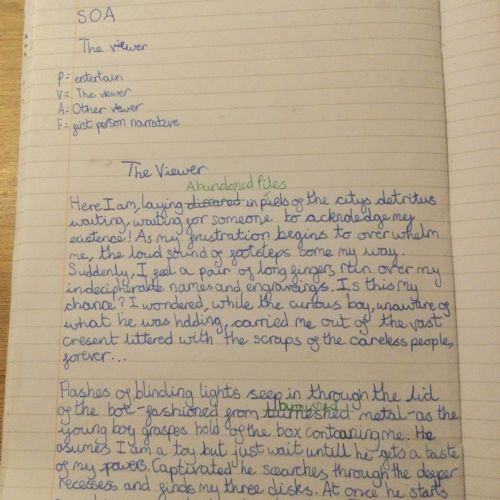 SOA
The viewer
P= entertain
V= The viewer
A= Other viewer
F= first person narrative
The Viewer
Abandoned files
Here I am, laying discared in piels of the citys detritus
waiting, waiting for someone to acknoledge my
existence! As my frustration begins to overwhelm
me, the loud sound of footsteps come my way.
Suddenly, I feel a pair of long fingers run over my
indecipherable names and engravings. Is this my
chance? I wondered, while the curious boy, unaware of
what he was holding, carried me out of the vast
cresent littered with the scraps of the careless people,
forever...
Flashes of blinding lights seep in through the lid
of the box-fashioned from burneshed metal-as the
young boy graspes hold of the box containing me. He
asumes I am a toy but just wait untill he gets a taste
of my powers. Captivated he searches, through the deeper
recessess and finds my three disks. At once he starts